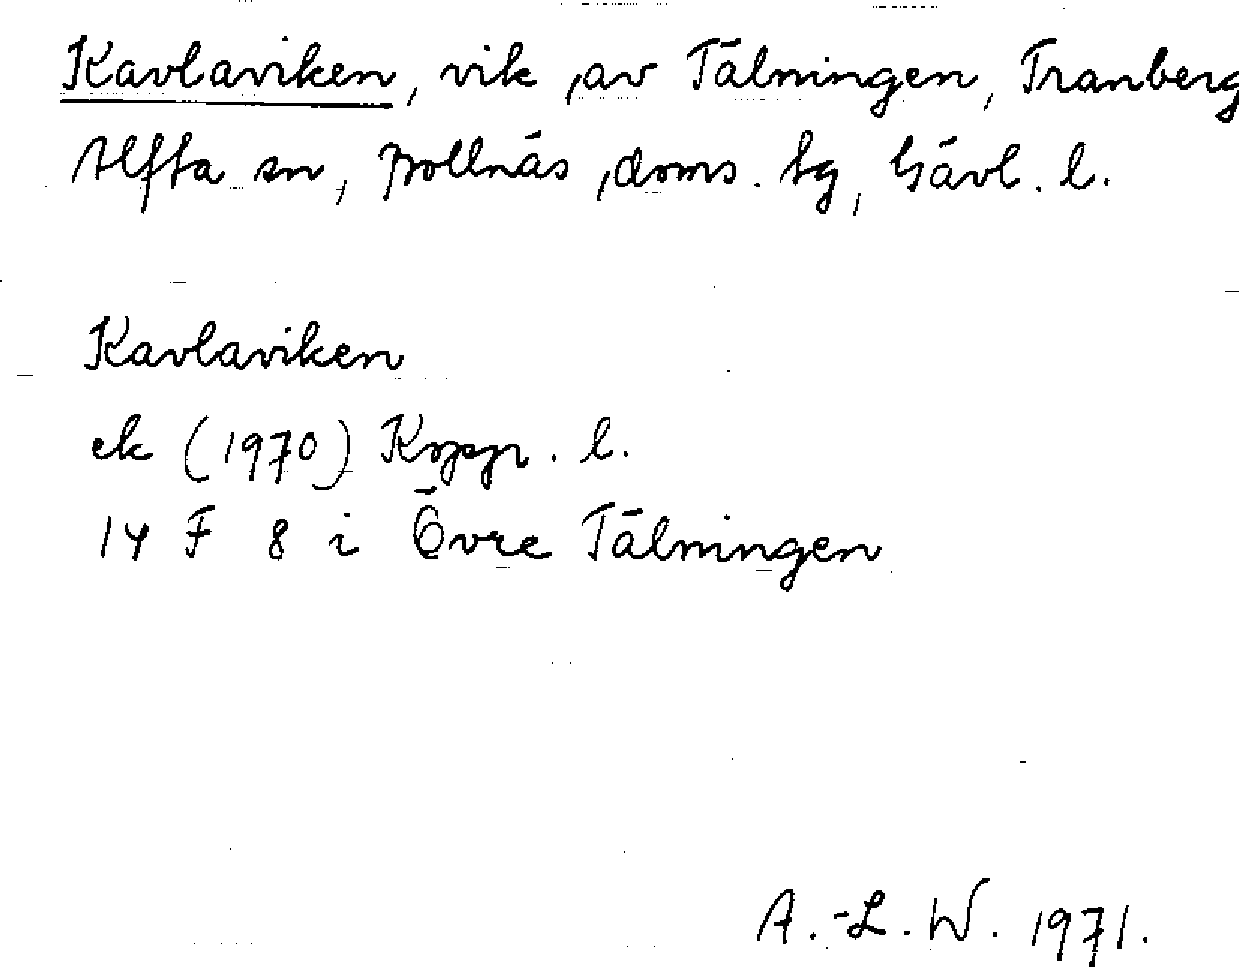 Kavlaviken, vik av Tälningen, Tranberg
Alfta sn, Bollnäs doms. tg, Gävl. l.
Kavlaviken
ek (1970) Kopp. l.
14 F 8 i Övre Tälningen
A.-L. W. 1971.